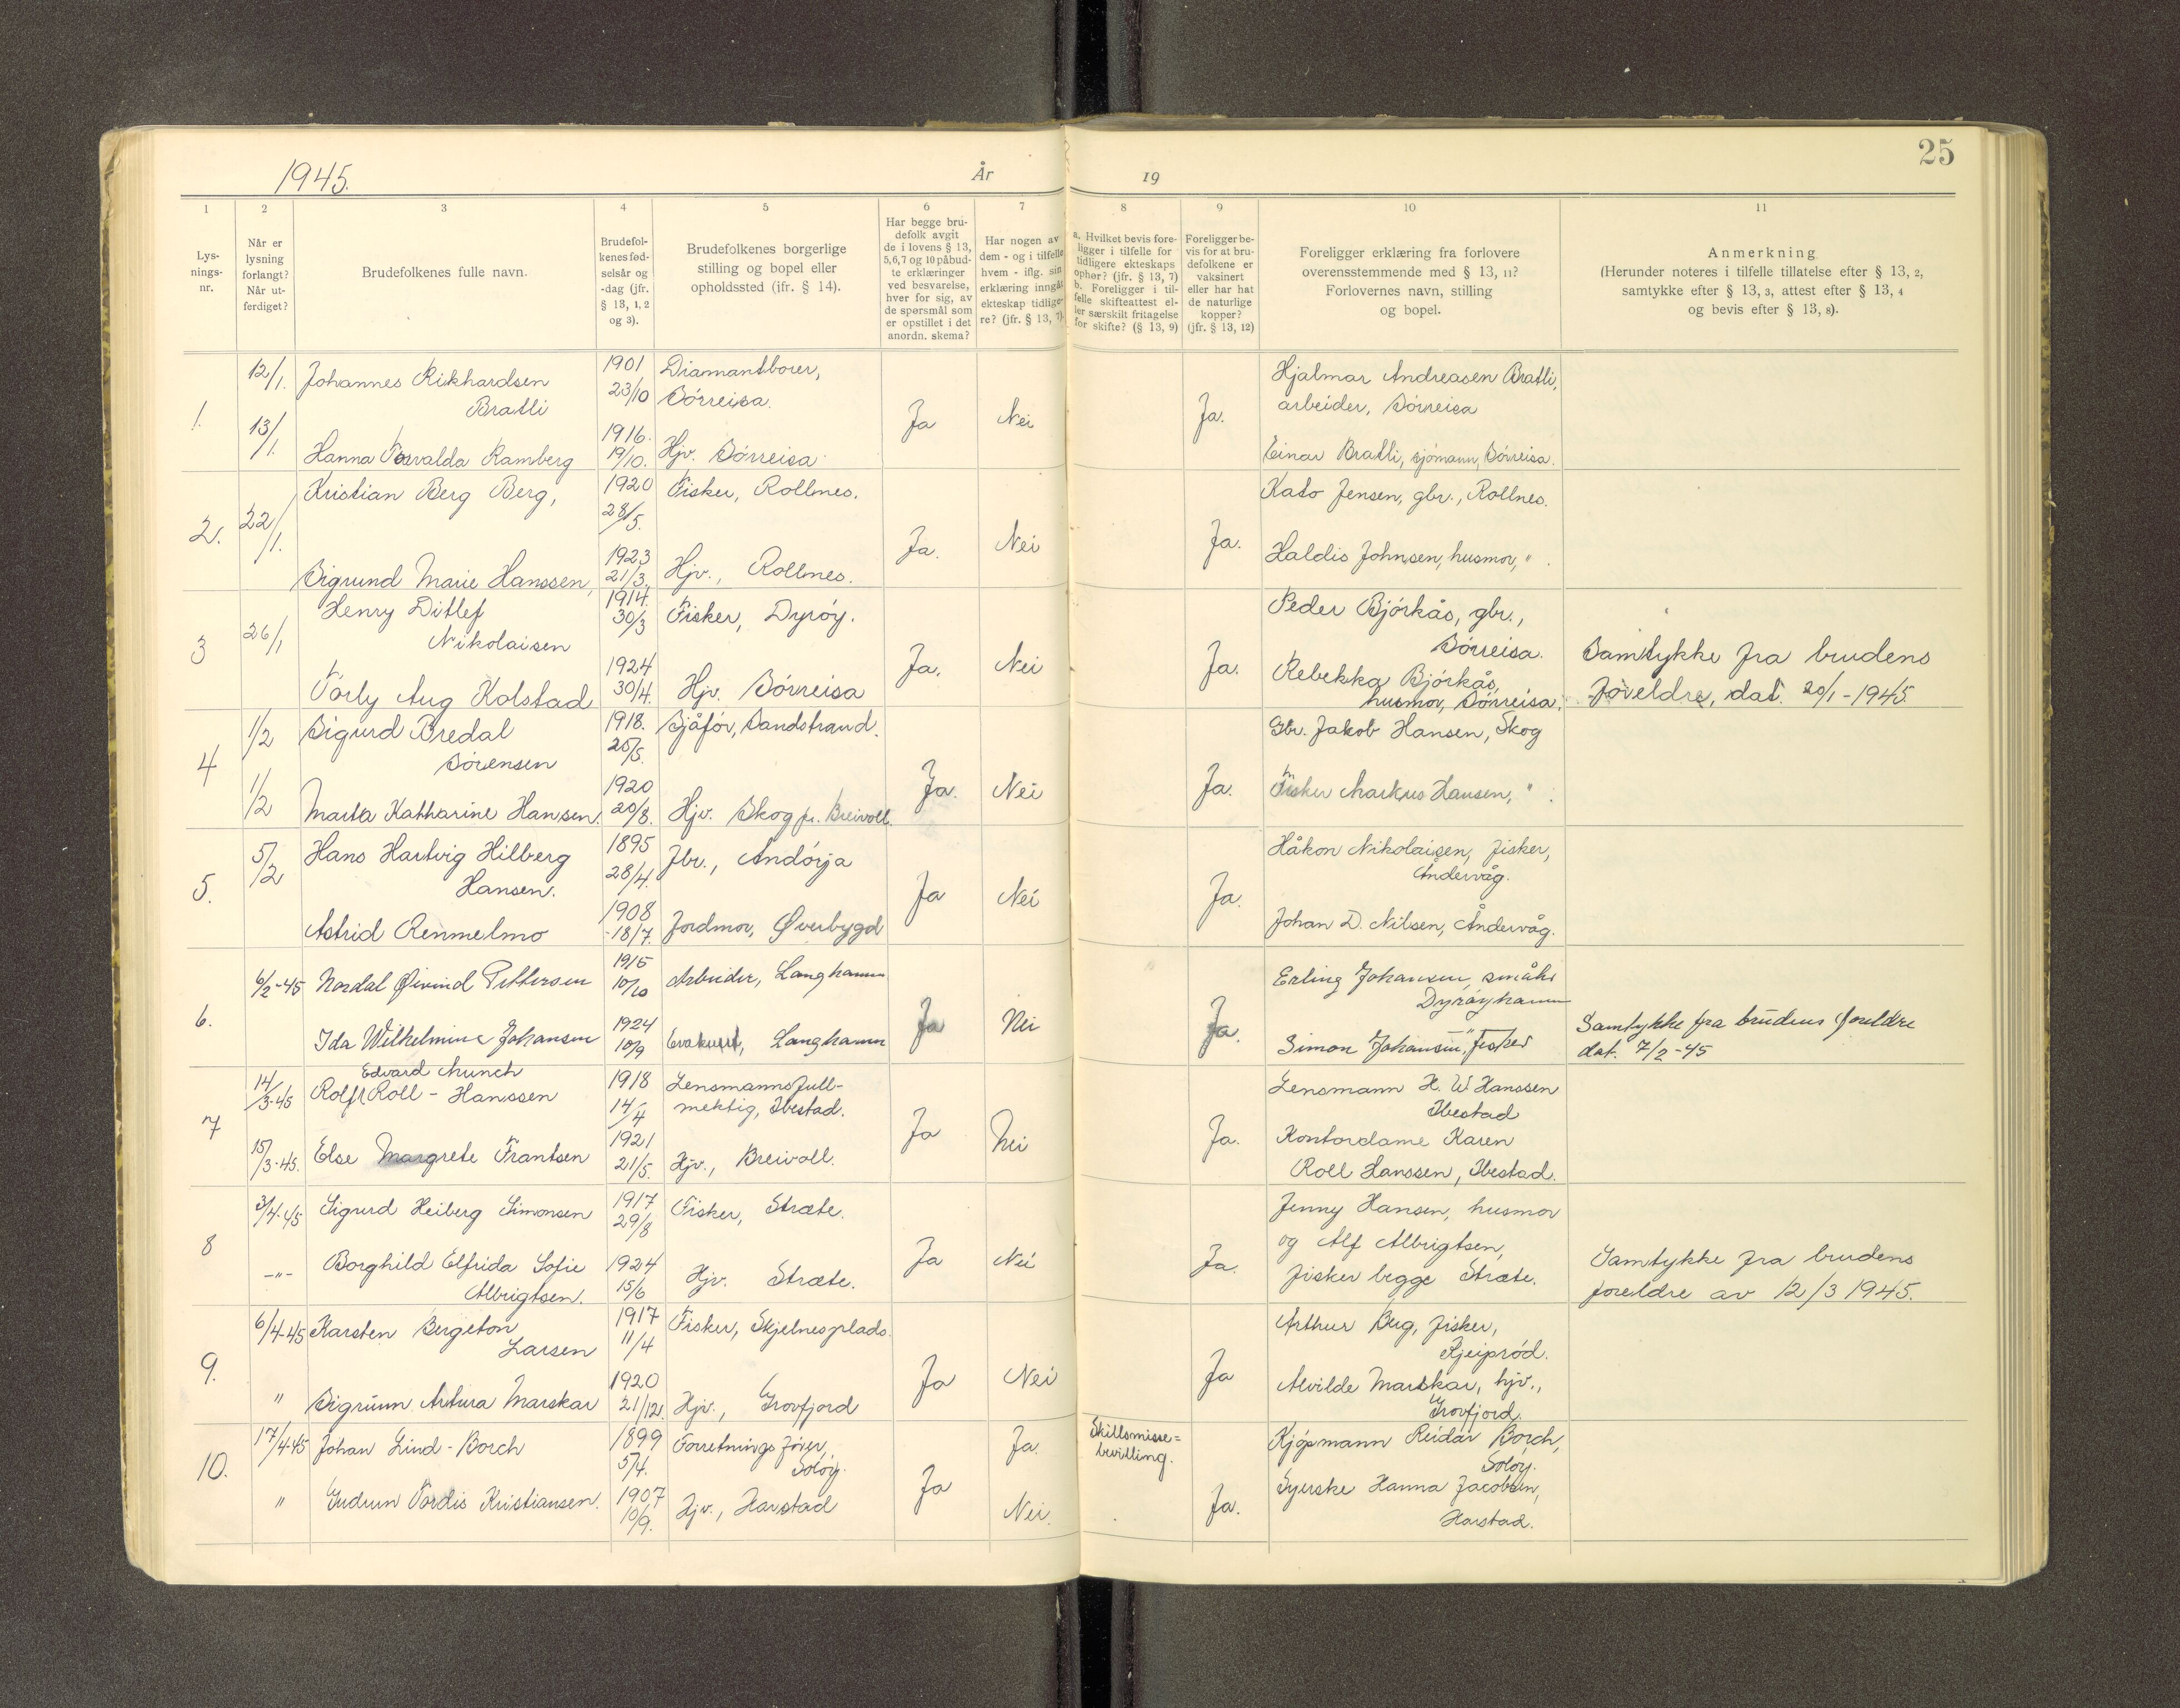 25
1945.
År
19
1
2
3
4
5
6
7
8
9
10
11
Lys-
nings-
nr.
Når er
lysning
forlangt?
Når ut-
ferdiget?
Brudefolkenes fulle navn.
Brudefol-
kenes fød-
selsår og
-dag (jfr.
§ 13, 1, 2
og 3).
Brudefolkenes borgerlige
stilling og bopel eller
opholdssted (ifr. § 14).
Har begge bru-
defolk avgit
de i lovens § 13,
5,6,7 og 10 påbud-
te erklæringer
ved besvarelse,
hver for sig, av
de spørsmål som
er opstillet i det
anordn. skema?
Har nogen av
dem - og i tilfelle
hvem - iflg. sin
erklæring inngåt
ekteskap tidlige-
re? (jfr. § 13, 7)
a. Hvilket bevis fore-
ligger i tilfelle for
tidligere ekteskaps
ophør? (jfr. § 13, 7)
b. Foreligger i til-
felle skifteattest el-
ler særskilt fritagelse
for skifte? (§ 13, 9)
Foreligger be-
vis for at bru-
defolkene er
vaksinert
eller har hat
de naturlige
kopper?
(jfr. § 13, 12)
Foreligger erklæring fra forlovere
overensstemmende med § 13, 11?
Forlovernes navn, stilling
og bopel.
Anmerkning
(Herunder noteres i tilfelle tillatelse efter § 13, 2,
samtykke efter § 13, 3, attest efter § 13, 4
og bevis efter § 13, 8).
1.
12/1.
Johannes Rikhardsen
Bratli
1901
23/10
Diamantborer,
Sørreisa.
13/1.
Hanna Torvalda Ramberg
1916.
19/10.
Hjv. Sørreisa
Ja
Nei
Ja.
Hjalmar Andreasen Bratli,
arbeider, Sørreisa
Einar Bratli, sjømann, Sørreisa.
2.
22/1.
Kristian Berg Berg,
1920
28/5.
Fisker, Rollnes.
Sigrund Marie Hanssen,
1923
21/3.
Hjv., Rollnes.
Ja.
Nei
Ja.
Kato Jensen, gbr., Rollnes.
Haldis Johnsen, husmor, " .
3
26/1
Henry Ditlef
Nikolaisen
1914.
30/3
Fisker, Dyrøy.
Torly Aug Kolstad
1924
30/4.
Hjv. Sørreisa
Ja.
Nei
Ja.
Peder Bjørkås, gbr.,
Sørreisa.
Rebekka Bjørkås,
husmor, Sørreisa.
Samtykke fra brudens
foreldre, dat. 20/1-1945.
4
1/2
Sigurd Bredal
Sørensen
1918.
25/5.
Sjåfør, Sandstrand.
1/2
Marta Katharine Hansen.
1920
20/8.
Hjv. Skog pr. Breivoll.
Ja.
Nei
Ja.
Gbr. Jakob Hansen, Skog
Fisker Markus Hansen, " .
5.
5/2
Hans Hartvig Hilberg
Hansen.
1895
28/4.
Jbr., Andørja
Astrid Renmelmo
1908
18/7.
Jordmor, Øverbygd
Ja
Nei
Ja.
Håkon Nikolaisen, fisker,
Åndervåg.
Johan D. Nilsen, Åndervåg.
6.
6/2-45
Nordal Øivind Pettersen
1915
10/10
Arbeider, Langhamn
Ida Wilhelmine Johansen
1924
10/9
Evakuert, Langhamn
Ja
Nei
Ja.
Erling Johansen, småbr
Dyrøyhamn
Simon Johansen, fisker —"—
Samtykke fra brudens foreldre
dat. 7/2-45
7
14/3-45
Edvard Munch
Rolf Roll-Hanssen
1918
14/4
Lensmannsfull-
mektig, Ibestad.
15/3-45.
Else Margrete Frantsen
1921
21/5.
Hjv., Breivoll.
Ja
Nei
Ja.
Lensmann H. W. Hanssen
Ibestad
Kontordame Karen
Roll Hanssen, Ibestad.
8
3/4-45
Sigurd Heiberg Simonsen
1917
29/8
Fisker, Stræte.
-"-
Borghild Elfrida Sofie
Albrigtsen.
1924
15/6
Hjv. Stræte.
Ja
Nei
Ja.
Jenny Hansen, husmor
og Alf Albrigtsen,
fisker begge Stræte.
Samtykke fra brudens
foreldre av 12/3 1945.
9.
6/4-45
Karsten Bergeton
Larsen
1917
11/4
Fisker, Skjelnesplads.
"
Sigrunn Artura Marskar
1920
21/12.
Hjv., Grovfjord
Ja
Nei
Ja
Arthur Berg, fisker,
Skjeiprød.
Alvilde Marskar, hjv.,
Grovfjord.
10.
17/4-45
Johan Lind-Borch
1899
5/4.
Forretningsfører,
Soløy.
"
Gudrun Tordis Kristiansen.
1907
10/9.
Hjv., Harstad
Ja
Ja.
Nei.
Skillsmisse=
bevilling.
Ja.
Kjøpmann Reidar Borch,
Soløy.
Syerske Hanna Jacobsen,
Harstad.